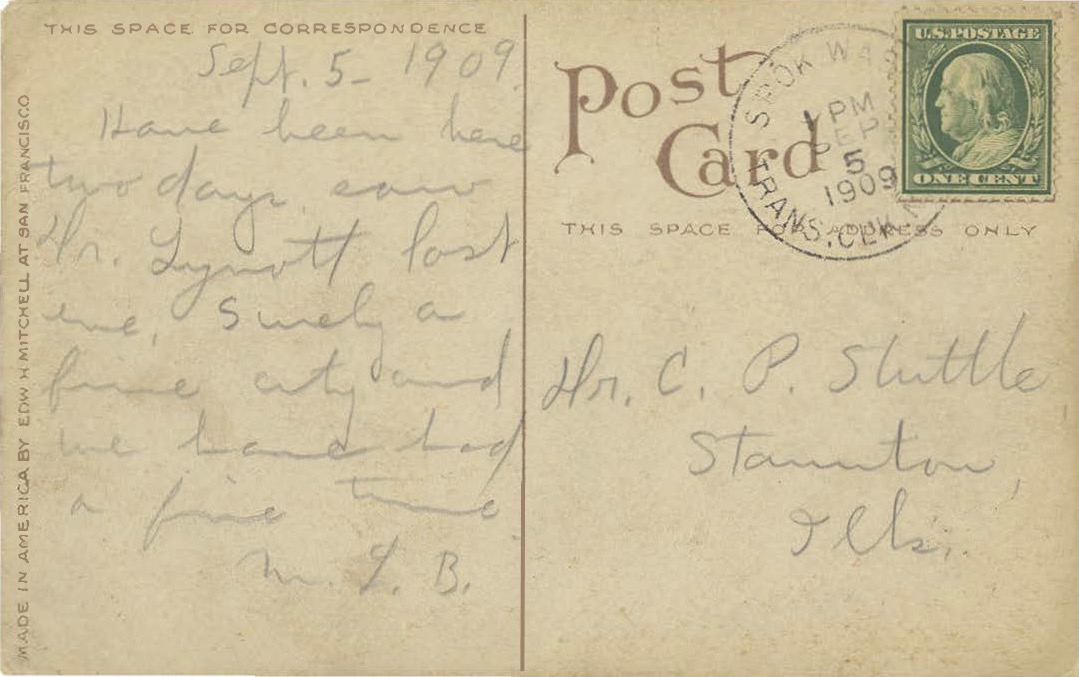 THIS SPACE FOR CORRESPONDENCE
Sept. 5 - 1909.
Have been here
two days saw
Dr. Lynott last
eve. Surely a
fine city and
we have had
a fine time
M. L. B.
MADE IN AMERICA BY EDW H MITCHELL AT SAN FRANCISCO
Post
Card
THIS SPACE FOR ADDRESS ONLY
SPOK WAS
1 PM
SEP
5
1909
TRANS. CLK.
U.S. POSTAGE
ONE CENT
Dr. C. P. Stuttle
Staunton,
Ills.